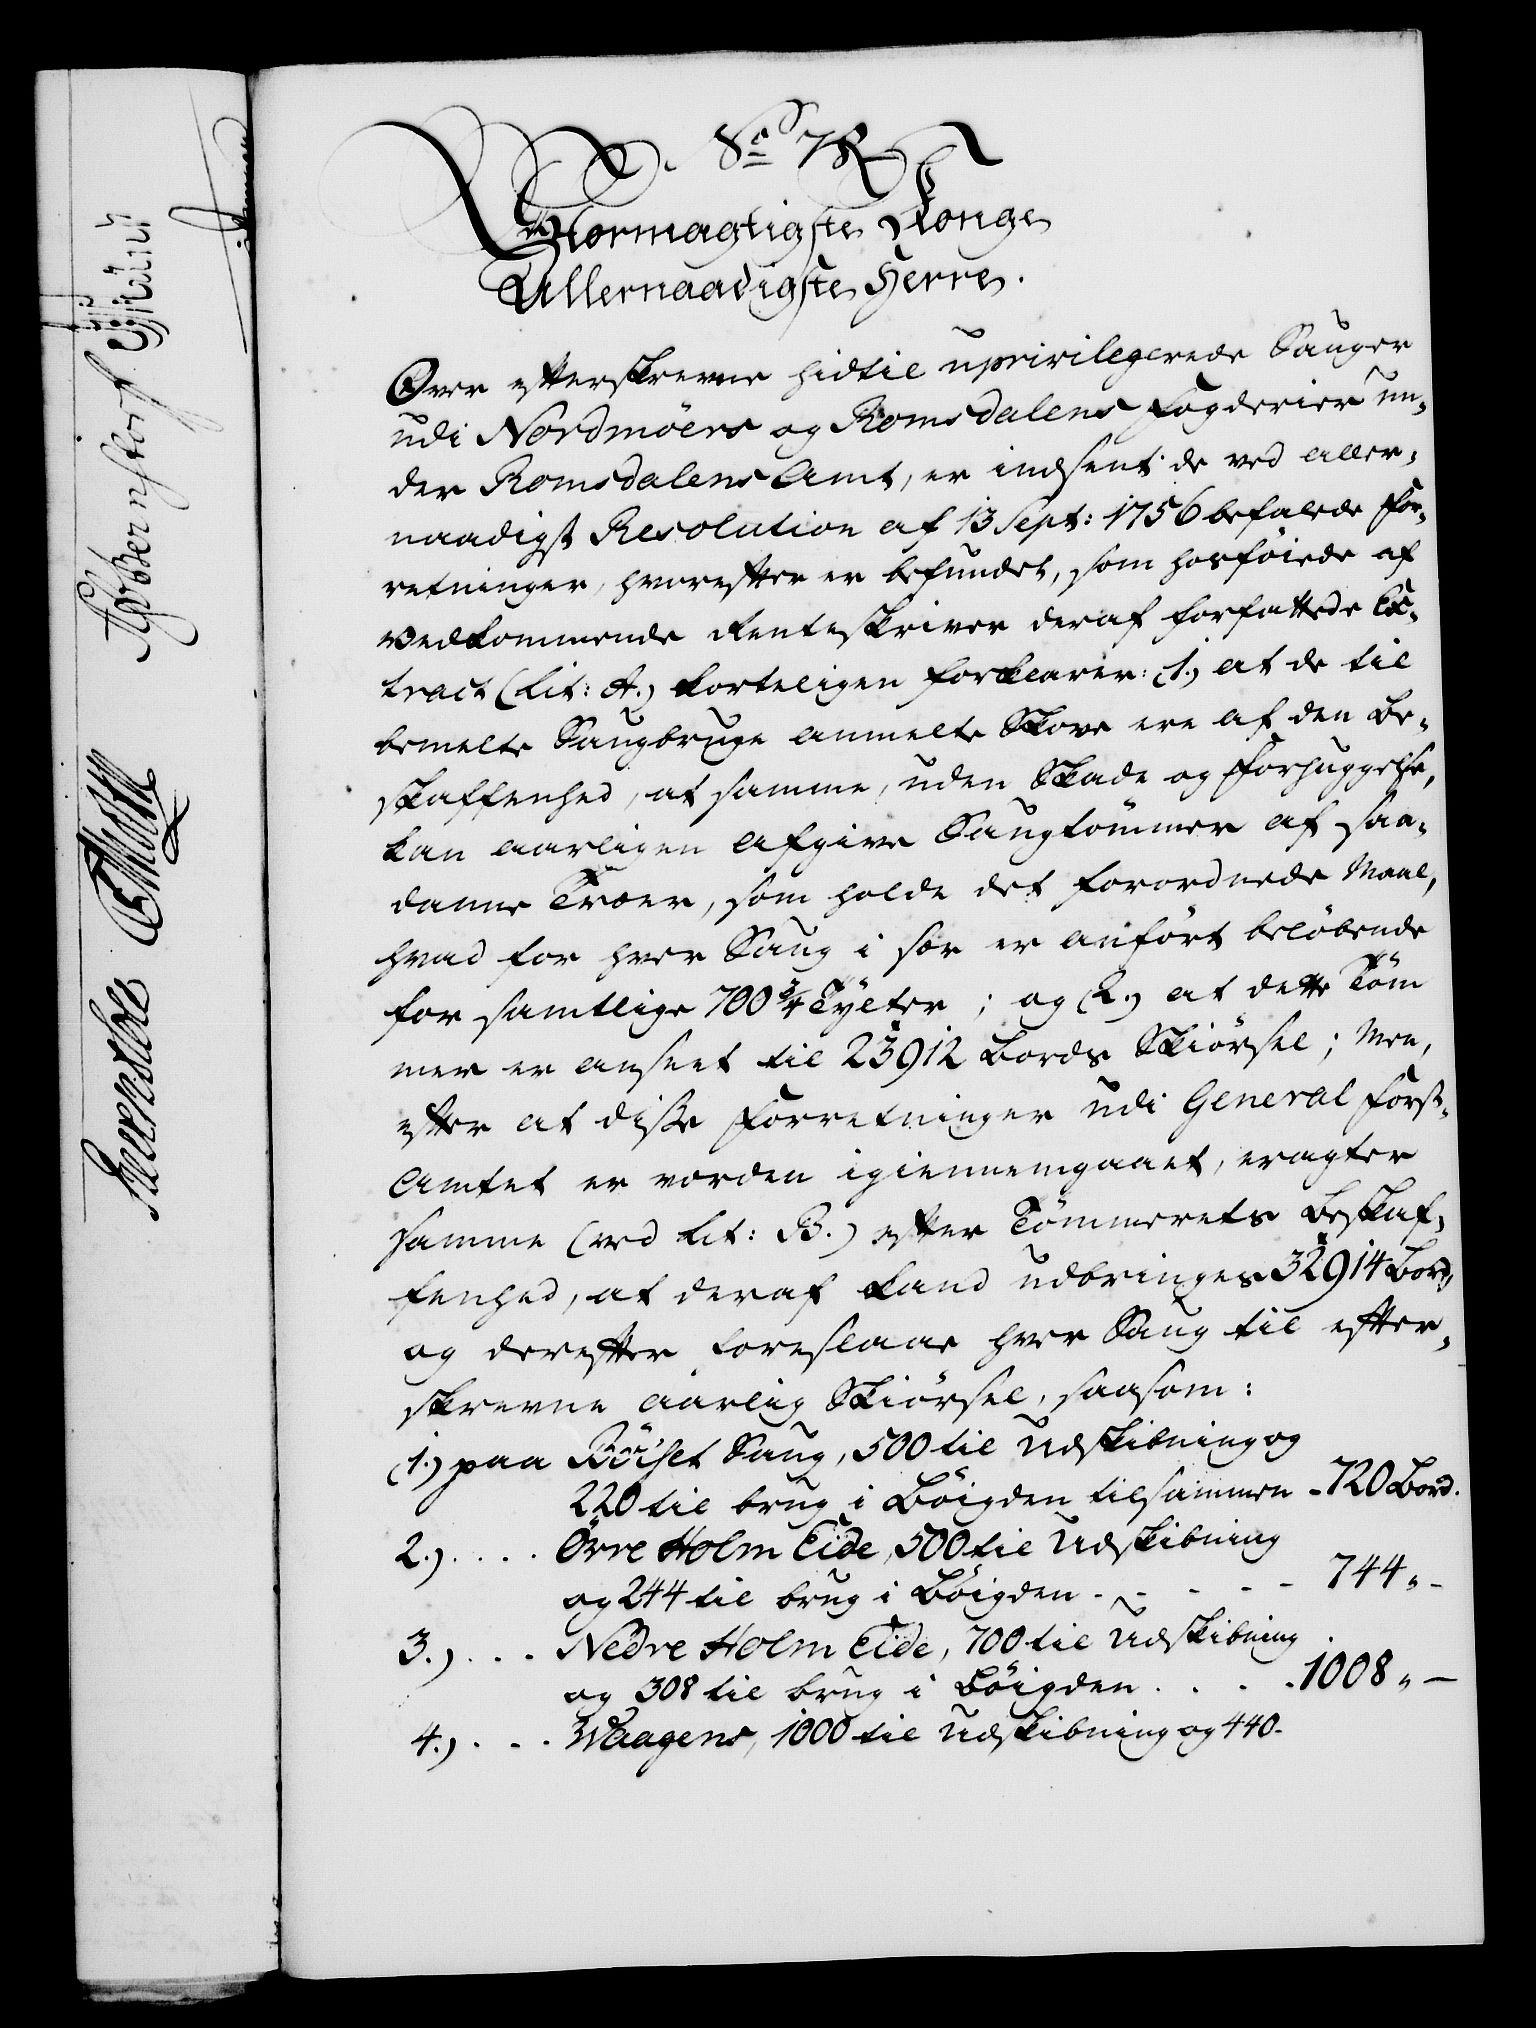 No 78
Stormægtigste Konge
Allernaadigste Herre.
Over efterskrevne hidtil uprivilegerede Sauger
udi Nordmøers og Romsdalens Fogderier un-
der Romsdalens Amt, er indsent de ved aller-
naadigst Resolution af 13 Sept: 1756 befalede For-
retninger, hvorefter er befundet, som hosføiede af
vedkommende Renteskriver deraf forfattede Ex-
tract (Lit: A.) korteligen forklarer: (1.) at de til
bemelte Saugbruge anmelte Skove ere af den Be-
skaffenhed, at samme, uden Skade og Forhuggelse,
kan aarligen afgive Saugtømmer af saa-
danne Træer, som holde det forordnede Maal,
hvad for hver Saug i sær er anført beløbende
for samtlige 700 3/4 Tylter; og (2.) at dette Tøm
mer er anseet til 23912 Bords Skiørsel; Men,
efter at disse Forretninger udi General Forst-
Amtet er vorden igiennemgaaet, eragter
samme (ved Lit: B.) efter Tømmerets Beskaf-
fenhed, at deraf kand udbringes 32914 Bord,
og derefter foreslaae hver Saug til efter-
skrevne aarlig Skiørsel, saasom:
(1.) paa Röiset Saug, 500 til Udskibning og
220 til brug i Böigden tilsammen - 720 Bord.
2.) . . . . Övre Holm Eide, 500 til Udskibning
og 244 til brug i Böigden - - - - - 744 „ -
3.) . . . Nedre Holm Eide, 700 til Udskibning
og 308 til brug i Böigden . . . . 1008 „ -
4.) . . . Waagens, 1000 til Udskibning og 440-